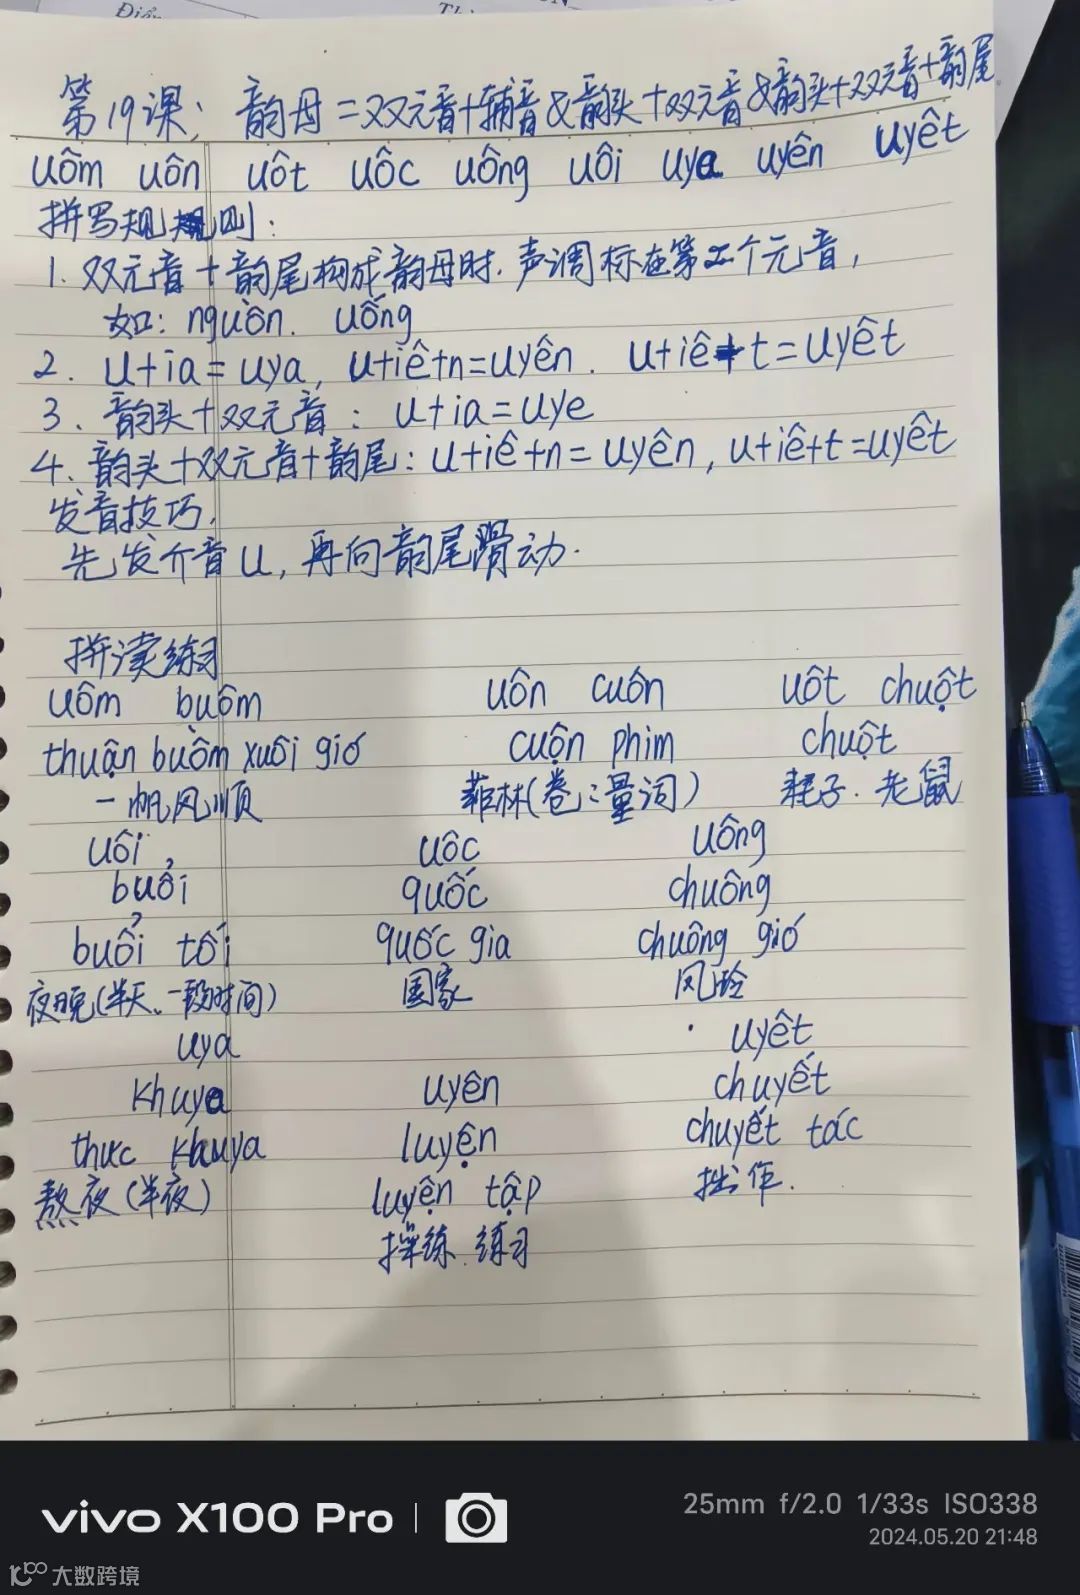 Điể
Th
第19课; 韵母=双元音+辅音&韵头+双元音&韵头+双元音+韵尾
uôm uôn uôt uôc uông uôi uya uyên uyêt
拼写规则:
1. 双元音+韵尾构成韵母时.声调标在第二个元音,
如: nguồn. uống
2. u+ia=uya, u+iê+n=uyên. u+iê+t=uyêt
3. 韵头+双元音: u+ia=uye
4. 韵头+双元音+韵尾: u+iê+n=uyên, u+iê+t=uyêt
发音技巧,
先发介音u,再向韵尾滑动.
拼读练习
uôm buồm uôn cuôn uôt chuột
thuận buồm xuôi gió cuộn phim chuột
一帆风顺 菲林(卷:量词) 耗子.老鼠
uôi uôc uông
buổi quốc chuông
buổi tối quốc gia chuông gió
夜晚(半天、一段时间) 国家 风玲
uya uyêt
khuya uyên chuyết
thức khuya luyện chuyết tác
熬夜(半夜) luyện tập 拙作.
操练.练习
vivo X100 Pro
25mm f/2.0 1/33s ISO338
2024.05.20 21:48
大数跨境